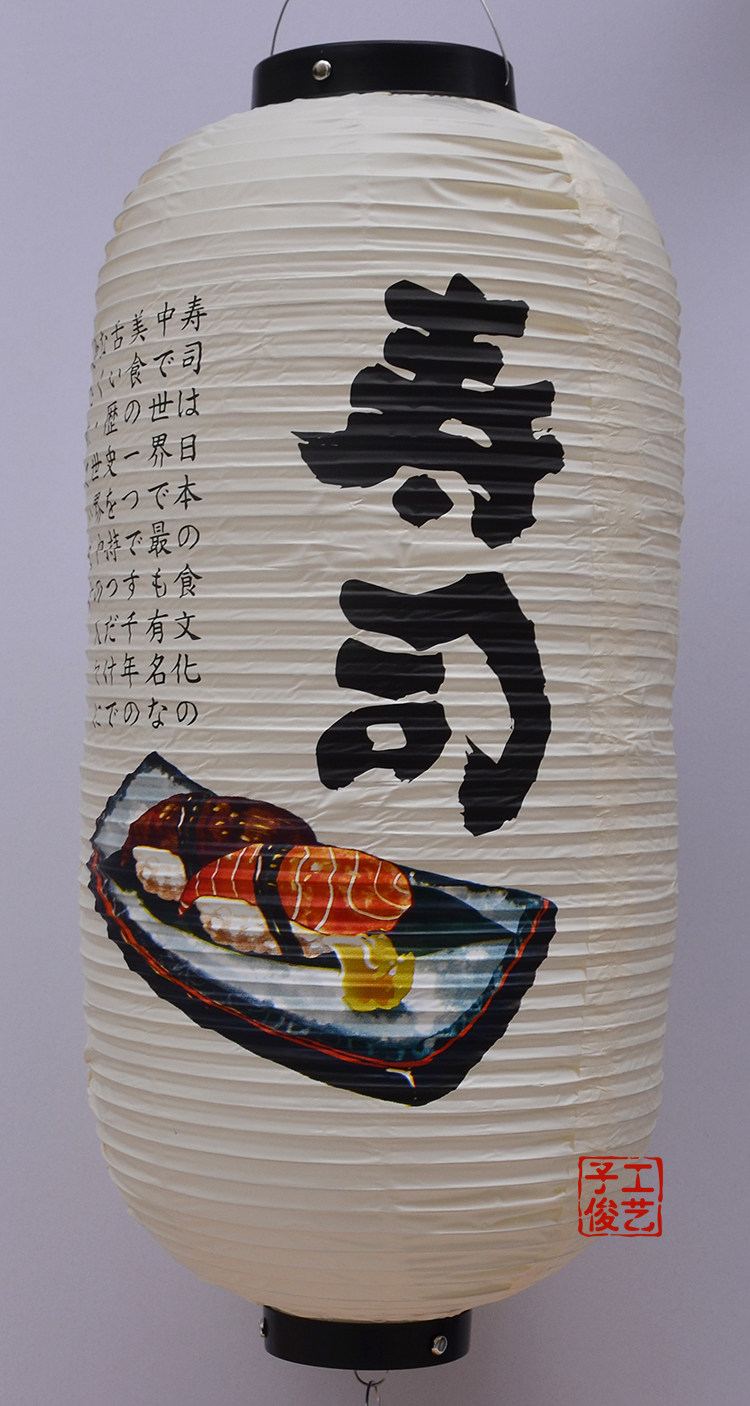 寿司
寿司は日本の食文化の
中で世界で最も有名な
美食の一つです千年の
古い歴史を持つだけで
子俊
工艺